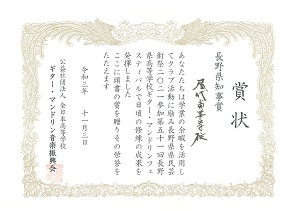 賞状
長野県知事賞
屋代高等学校
あなたたちは学業の余暇を活用し
てクラブ活動に励み長野県県民芸
術祭二〇二一参加第五十一回長野
県高等学校ギター・マンドリンフェ
スティバルで日頃の修練の成果を
発揮しました
ここに頭書の賞を贈りその栄誉を
たたえます
令和三年 十一月三日
公益社団法人 全日本高等学校
ギター・マンドリン音楽振興会